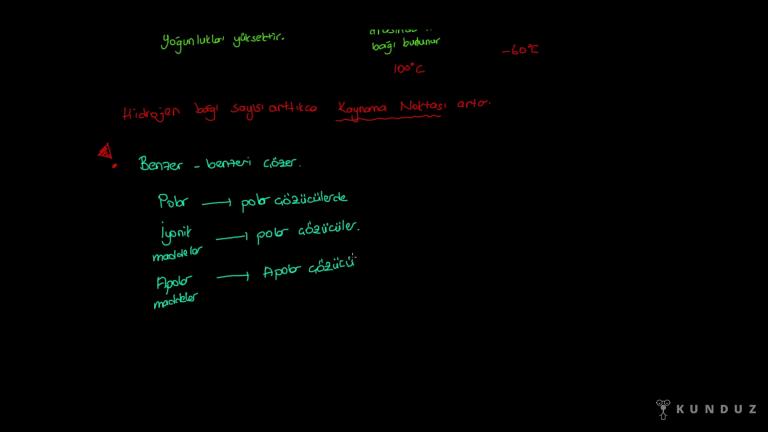 Yoğunlukları yüksektir.
arasında H
bağı bulunur
100°C
-60°C
Hidrojen bağı sayısı arttıkça Kaynama Noktası artar.
• Benzer - benzeri çözer.
Polar → polar çözücülerde
İyonik maddeler → polar çözücüler.
Apolar maddeler → Apolar çözücü
KUNDUZ